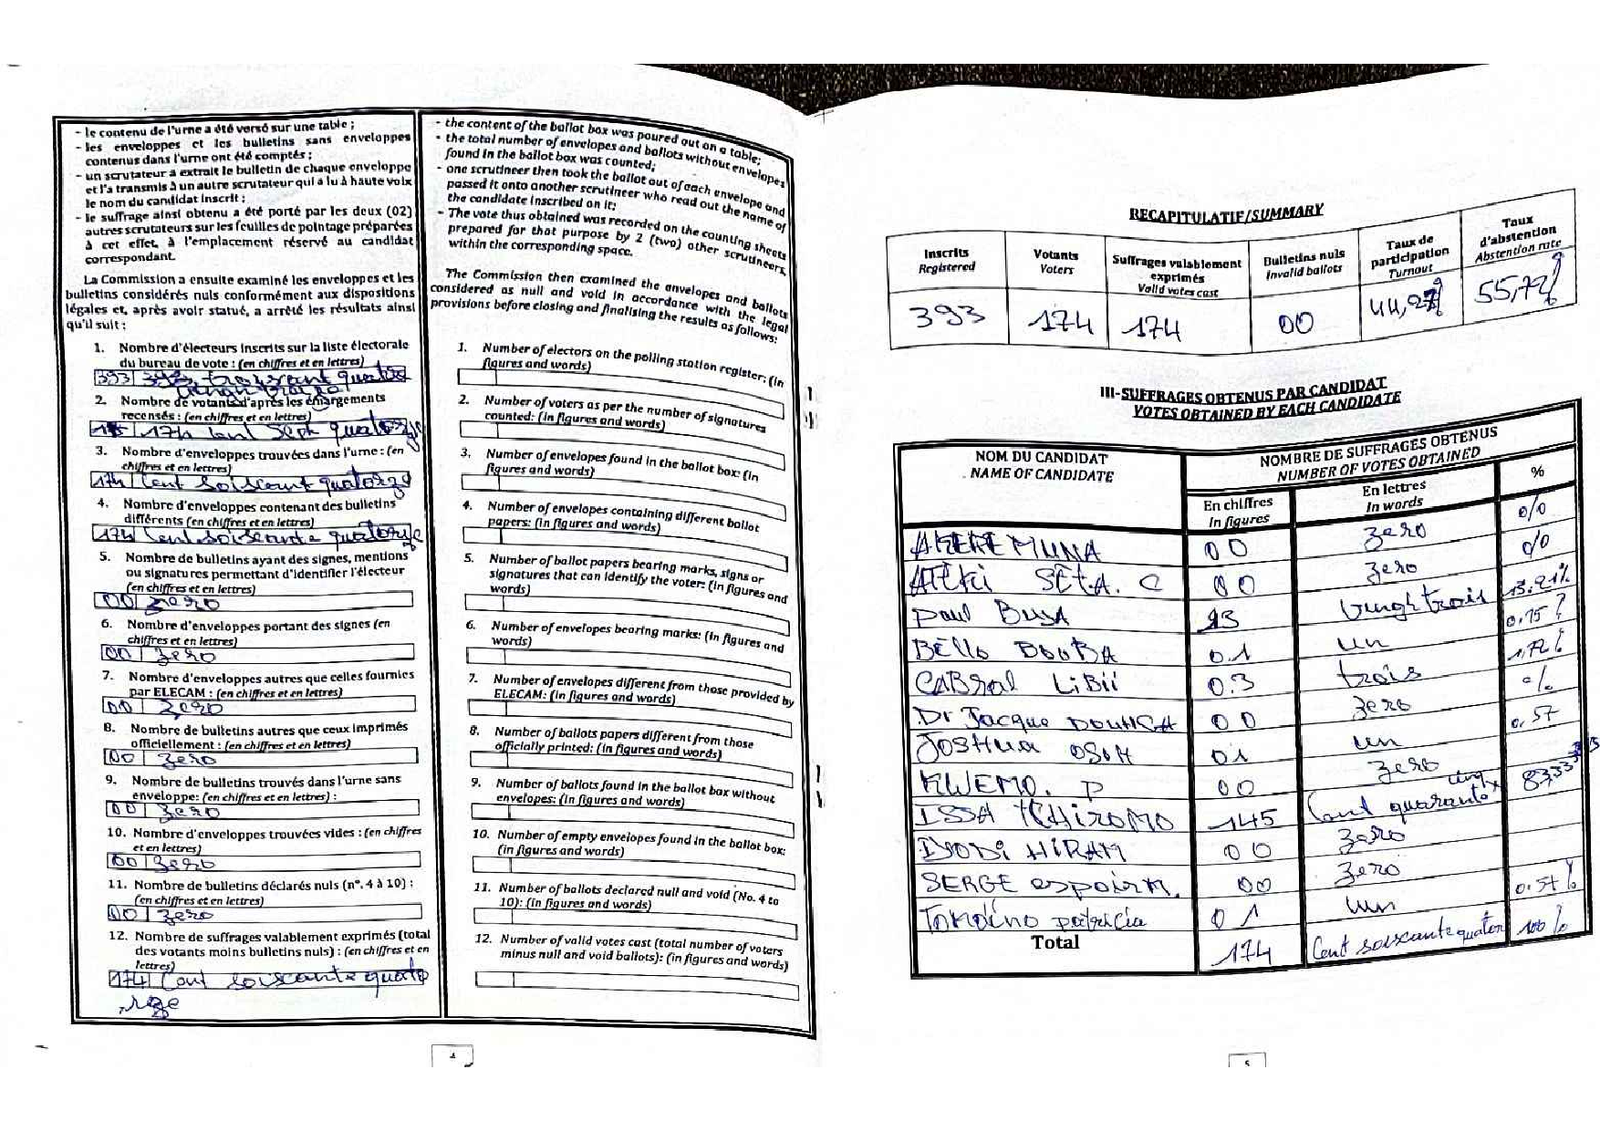 - le contenu de l'urne a été versé sur une table ;
- les enveloppes et les bulletins sans enveloppes
contenus dans l'urne ont été comptés ;
- un scrutateur a extrait le bulletin de chaque enveloppe
et l'a transmis à un autre scrutateur qui a lu à haute voix
le nom du candidat inscrit ;
- le suffrage ainsi obtenu a été porté par les deux (02)
autres scrutateurs sur les feuilles de pointage préparées
à cet effet, à l'emplacement réservé au candidat
correspondant.
La Commission a ensuite examiné les enveloppes et les
bulletins considérés nuls conformément aux dispositions
légales et, après avoir statué, a arrêté les résultats ainsi
qu'il suit :
1. Nombre d'électeurs inscrits sur la liste électorale
du bureau de vote : (en chiffres et en lettres)
393
2. Nombre de votants d'après les émargements
recensés : (en chiffres et en lettres)
174 Cent sept quatorze
3. Nombre d'enveloppes trouvées dans l'urne : (en
chiffres et en lettres)
174 Cent soiscant quatorze
4. Nombre d'enveloppes contenant des bulletins
différents (en chiffres et en lettres)
174 Cent soiscante quatorze
5. Nombre de bulletins ayant des signes, mentions
ou signatures permettant d'identifier l'électeur
(en chiffres et en lettres)
00 zero
6. Nombre d'enveloppes portant des signes (en
chiffres et en lettres)
00 zero
7. Nombre d'enveloppes autres que celles fournies
par ELECAM : (en chiffres et en lettres)
00 zero
8. Nombre de bulletins autres que ceux imprimés
officiellement : (en chiffres et en lettres)
00 zero
9. Nombre de bulletins trouvés dans l'urne sans
enveloppe: (en chiffres et en lettres) :
00 zero
10. Nombre d'enveloppes trouvées vides : (en chiffres
et en lettres)
00 zero
11. Nombre de bulletins déclarés nuls (n°. 4 à 10) :
(en chiffres et en lettres)
00 zero
12. Nombre de suffrages valablement exprimés (total
des votants moins bulletins nuls) : (en chiffres et en
lettres)
174 Cent soiscante quato
rze
- the content of the ballot box was poured out on a table;
- the total number of envelopes and ballots without envelopes
found in the ballot box was counted;
- one scrutineer then took the ballot out of each envelope and
passed it onto another scrutineer who read out the name of
the candidate inscribed on it;
- The vote thus obtained was recorded on the counting sheets
prepared for that purpose by 2 (two) other scrutineers,
within the corresponding space.
The Commission then examined the envelopes and ballots
considered as null and void in accordance with the legal
provisions before closing and finalising the results as follows:
1. Number of electors on the polling station register: (in
figures and words)
2. Number of voters as per the number of signatures
counted: (in figures and words)
3. Number of envelopes found in the ballot box: (in
figures and words)
4. Number of envelopes containing different ballot
papers: (in figures and words)
5. Number of ballot papers bearing marks, signs or
signatures that can identify the voter: (in figures and
words)
6. Number of envelopes bearing marks: (in figures and
words)
7. Number of envelopes different from those provided by
ELECAM: (in figures and words)
8. Number of ballots papers different from those
officially printed: (in figures and words)
9. Number of ballots found in the ballot box without
envelopes: (in figures and words)
10. Number of empty envelopes found in the ballot box:
(in figures and words)
11. Number of ballots declared null and void (No. 4 to
10): (in figures and words)
12. Number of valid votes cast (total number of voters
minus null and void ballots): (in figures and words)
4
RECAPITULATIF/SUMMARY
Inscrits Registered
Votants Voters
Suffrages valablement exprimés Valid votes cast
Bulletins nuls Invalid ballots
Taux de participation Turnout
Taux d'abstention Abstention rate
393 174 174 00 44,27% 55,72%
III-SUFFRAGES OBTENUS PAR CANDIDAT
VOTES OBTAINED BY EACH CANDIDATE
NOM DU CANDIDAT
NAME OF CANDIDATE
NOMBRE DE SUFFRAGES OBTENUS
NUMBER OF VOTES OBTAINED
En chiffres In figures
En lettres In words
%
AKERE MUNA 00 zero 0/0
ATEKI SETA. C 00 zero 0/0
Paul BIYA 23 vingt trois 13.21%
BELLO BOUBA 01 un
CABRAL LIBII 03 trois 1,72%
Dr Jacque 00 zero %
JOSHUA OSOH 01 un 0.57
KWEMO. P 00 zero
ISSA TCHIROMO 145 Cent quarante cinq
HIRAM 00 zero
SERGE espoir m. 00 zero
Tomaino patricia 01 un 0.57%
Total 174 Cent soiscante quator 100%
5